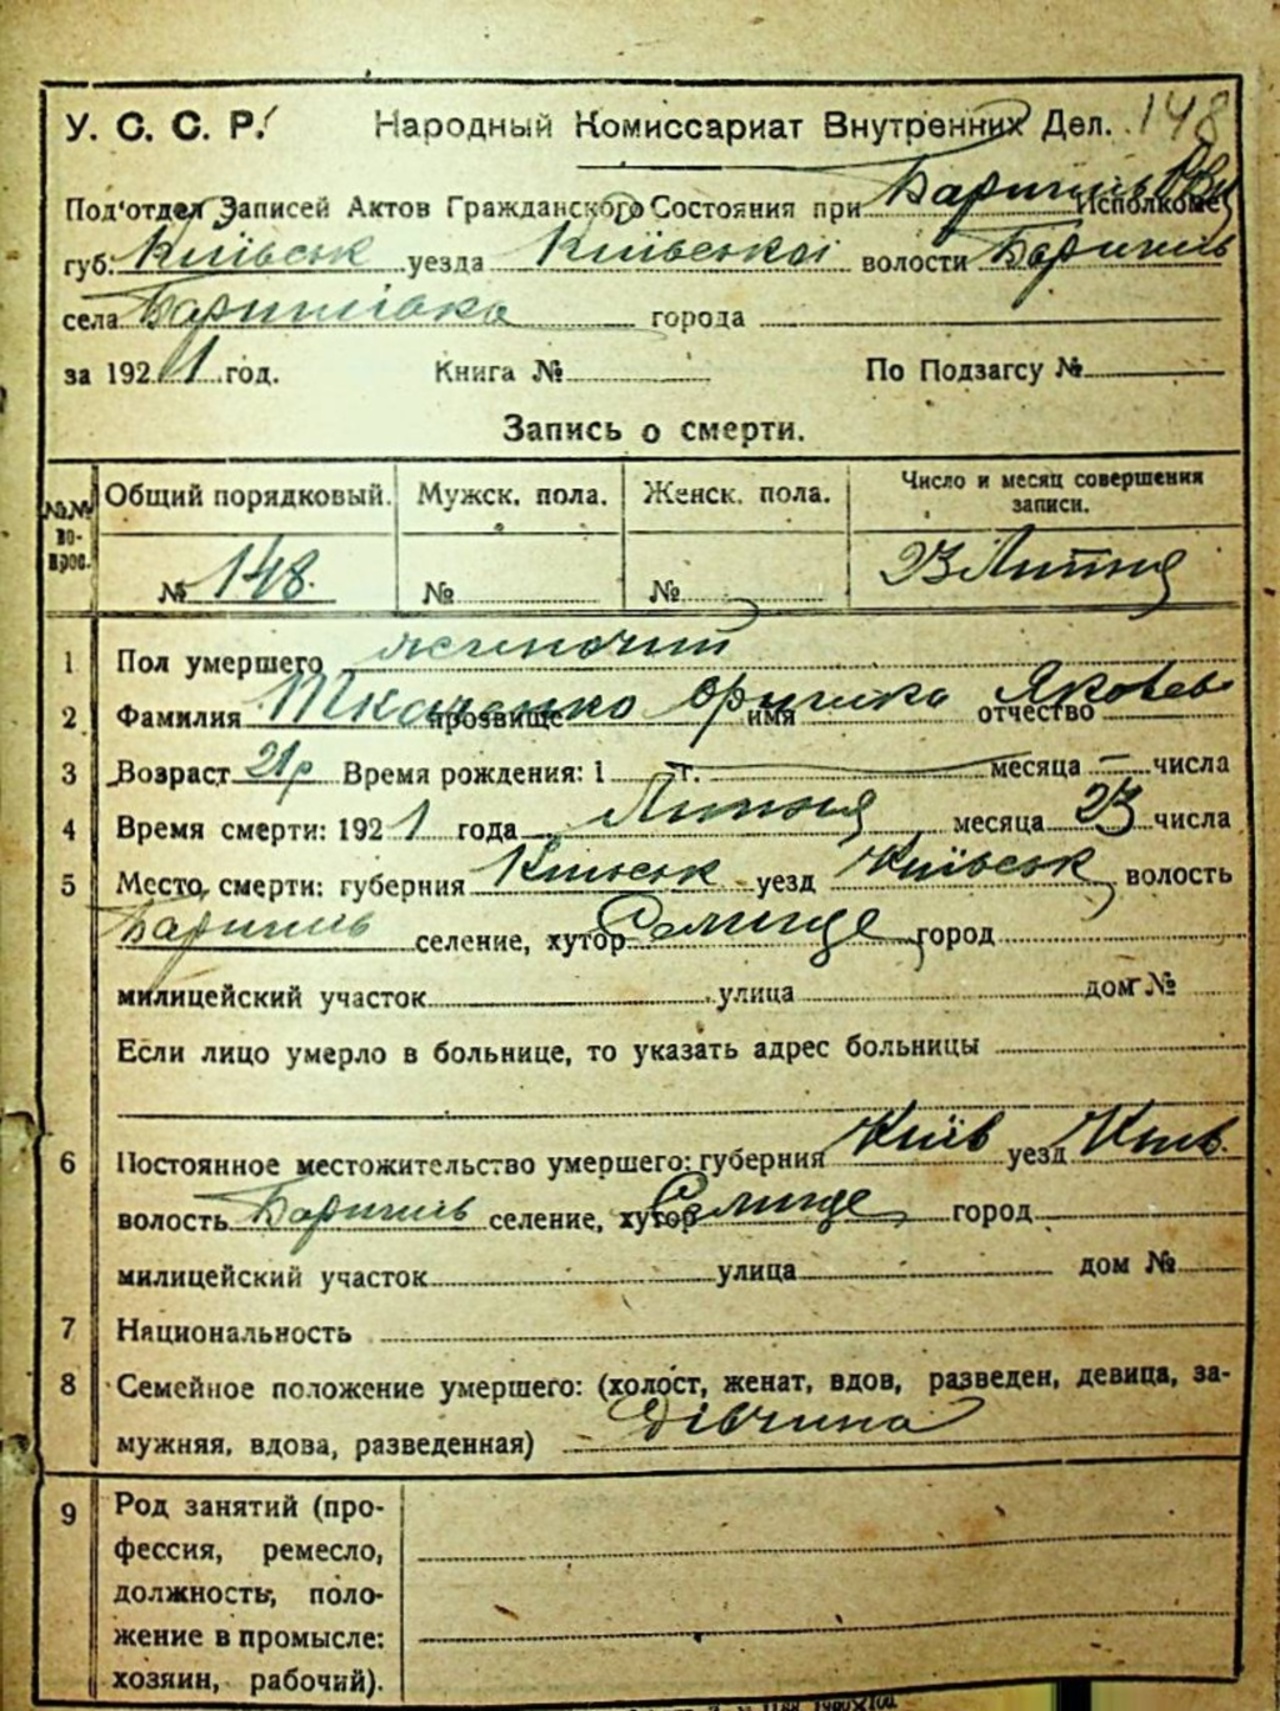 У. С. С. Р. Народный Комиссариат Внутренних Дел. 148
Под'отдел Записей Актов Гражданского Состояния при Баришів Исполкоме
губ. Київськ уезда Київської волости Баришів
села Баришівка города
за 1921 год. Книга № По Подзагсу №
Запись о смерти.
№№ вопрос. Общий порядковый. Мужск. пола. Женск. пола. Число и месяц совершения записи.
№ 148. № № 23 Липня
1 Пол умершего жіночий
2 Фамилия Ткаченко прозвище имя отчество Яковів
3 Возраст 21р Время рождения: 1 г. месяца — числа
4 Время смерти: 1921 года Липня месяца 23 числа
5 Место смерти: губерния Київськ уезд Київськ волость
Баришів селение, хутор Селище город
милицейский участок улица дом №
Если лицо умерло в больнице, то указать адрес больницы
6 Постоянное местожительство умершего: губерния Київ уезд Київ.
волость Баришів селение, хутор Селище город
милицейский участок улица дом №
7 Национальность
8 Семейное положение умершего: (холост, женат, вдов, разведен, девица, за-
мужняя, вдова, разведенная) Дівчина
9 Род занятий (про-
фессия, ремесло,
должность, поло-
жение в промысле:
хозяин, рабочий).